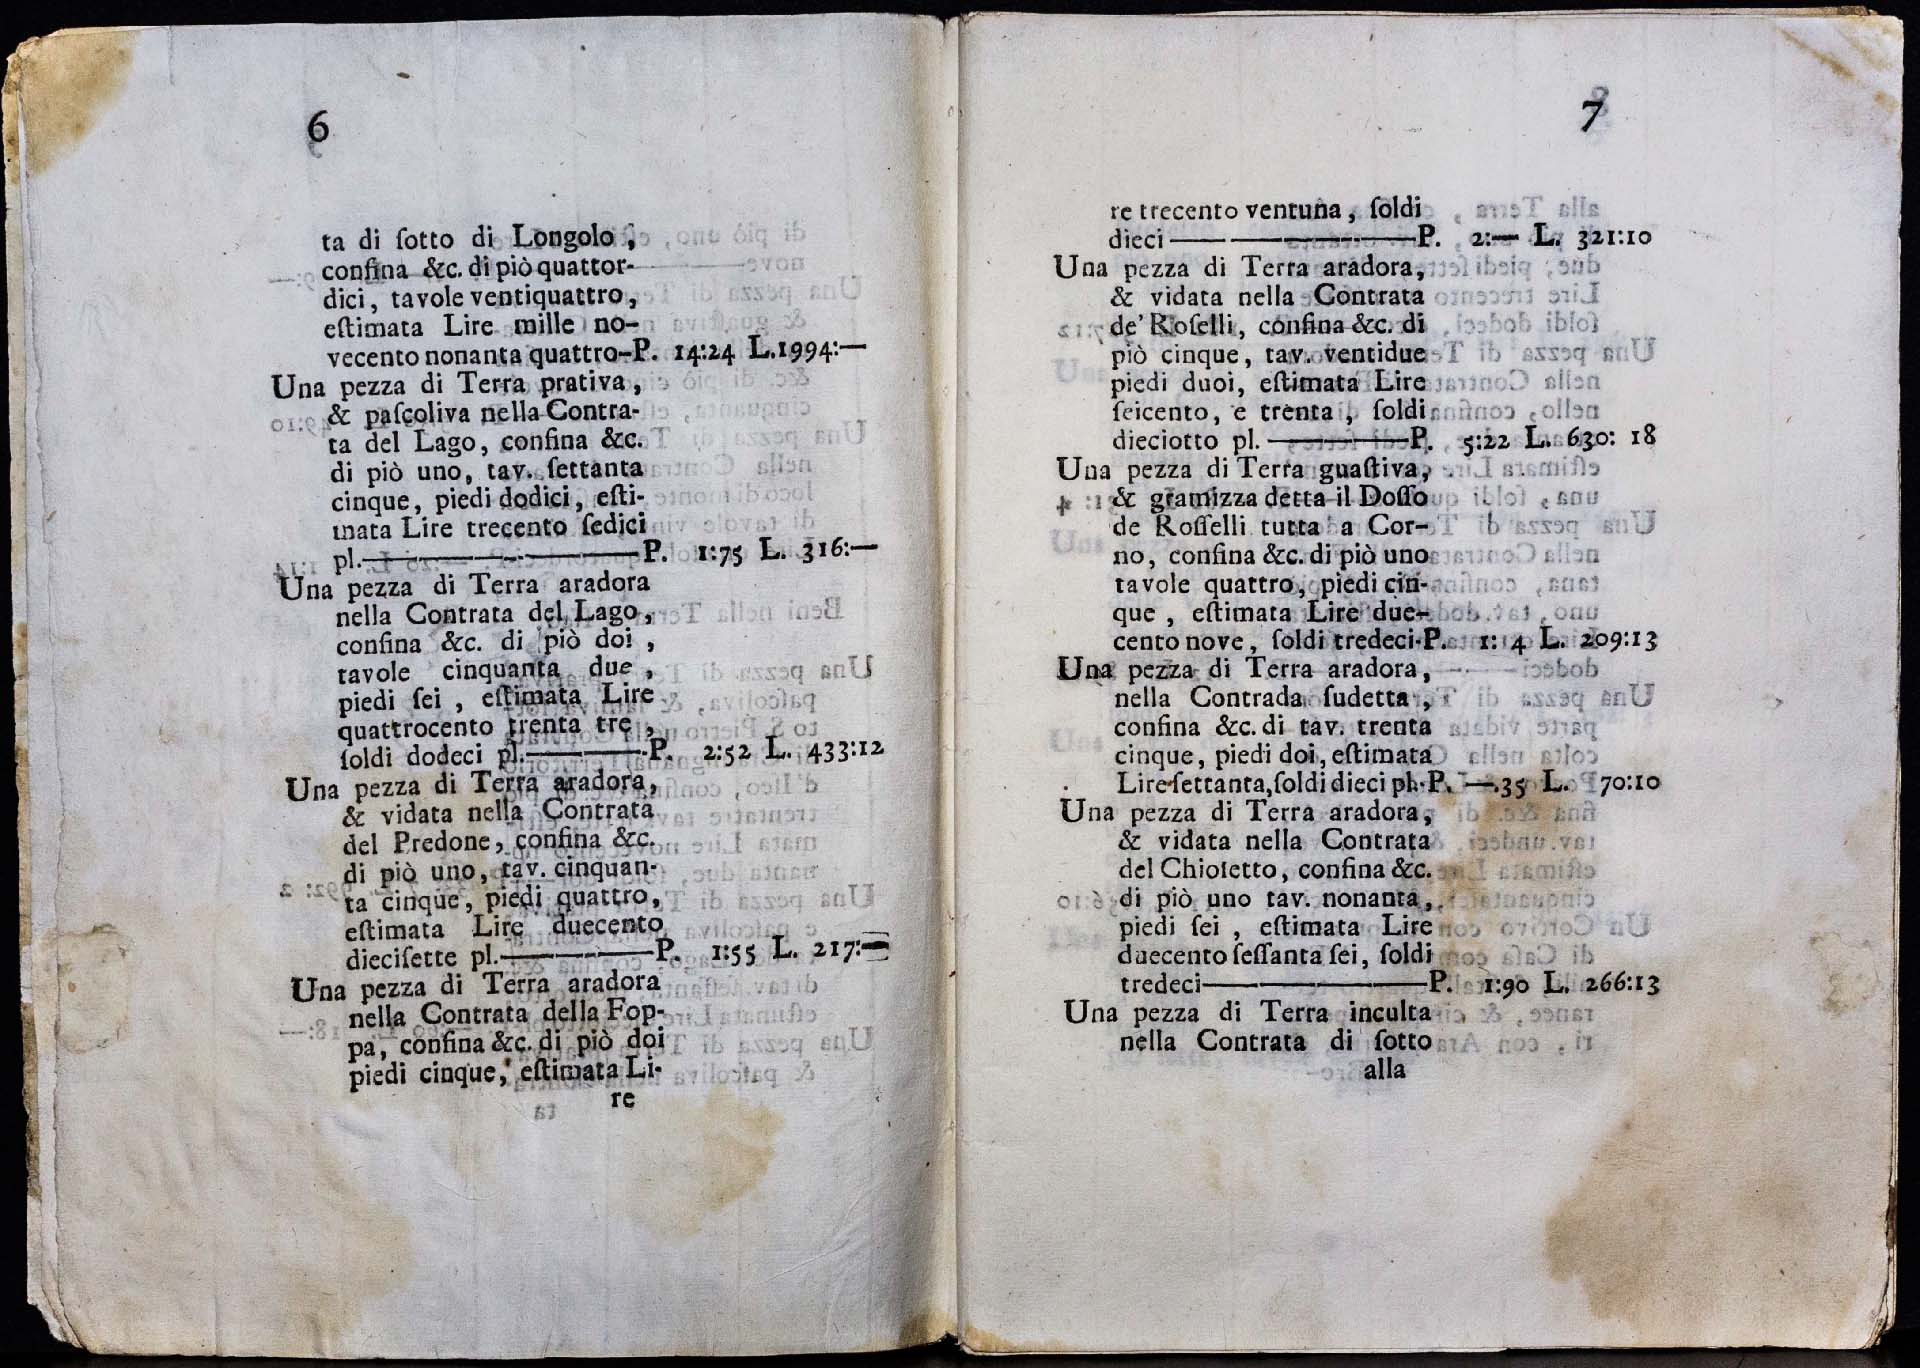 6
ta di ſotto di Longolo,
confina &c. di piò quattor-
dici, tavole ventiquattro,
eſtimata Lire mille no-
vecento nonanta quattro-P. 14:24 L.1994:—
Una pezza di Terra prativa,
& paſcoliva nella Contra-
ta del Lago, confina &c.
di piò uno, tav. ſettanta
cinque, piedi dodici, eſti-
mata Lire trecento ſedici
pl.————P. 1:75 L. 316:—
Una pezza di Terra aradora
nella Contrata del Lago,
confina &c. di piò doi,
tavole cinquanta due,
piedi ſei, eſtimata Lire
quattrocento trenta tre,
ſoldi dodeci pl.———P. 2:52 L. 433:12
Una pezza di Terra aradora,
& vidata nella Contrata
del Predone, confina &c.
di piò uno, tav. cinquan-
ta cinque, piedi quattro,
eſtimata Lire duecento
dieciſette pl.———P. 1:55 L. 217:—
Una pezza di Terra aradora
nella Contrata della Fop-
pa, confina &c. di piò doi
piedi cinque, eſtimata Li-
re
7
re trecento ventuna, ſoldi
dieci————P. 2:— L. 321:10
Una pezza di Terra aradora,
& vidata nella Contrata
de' Roſelli, confina &c. di
piò cinque, tav. ventidue
piedi duoi, eſtimata Lire
ſeicento, e trenta, ſoldi
dieciotto pl.———P. 5:22 L. 630: 18
Una pezza di Terra guaſtiva,
& gramizza detta il Doſſo
de Roſſelli tutta a Cor-
no, confina &c. di piò uno
tavole quattro, piedi cin-
que, eſtimata Lire due-
cento nove, ſoldi tredeci-P. 1: 4 L. 209:13
Una pezza di Terra aradora,
nella Contrada ſudetta,
confina &c. di tav. trenta
cinque, piedi doi, eſtimata
Lire ſettanta, ſoldi dieci pl.-P. —.35 L. 70:10
Una pezza di Terra aradora,
& vidata nella Contrata
del Chioietto, confina &c.
di piò uno tav. nonanta,
piedi ſei, eſtimata Lire
duecento ſeſſanta ſei, ſoldi
tredeci————P. 1:90 L. 266:13
Una pezza di Terra inculta
nella Contrata di ſotto
alla